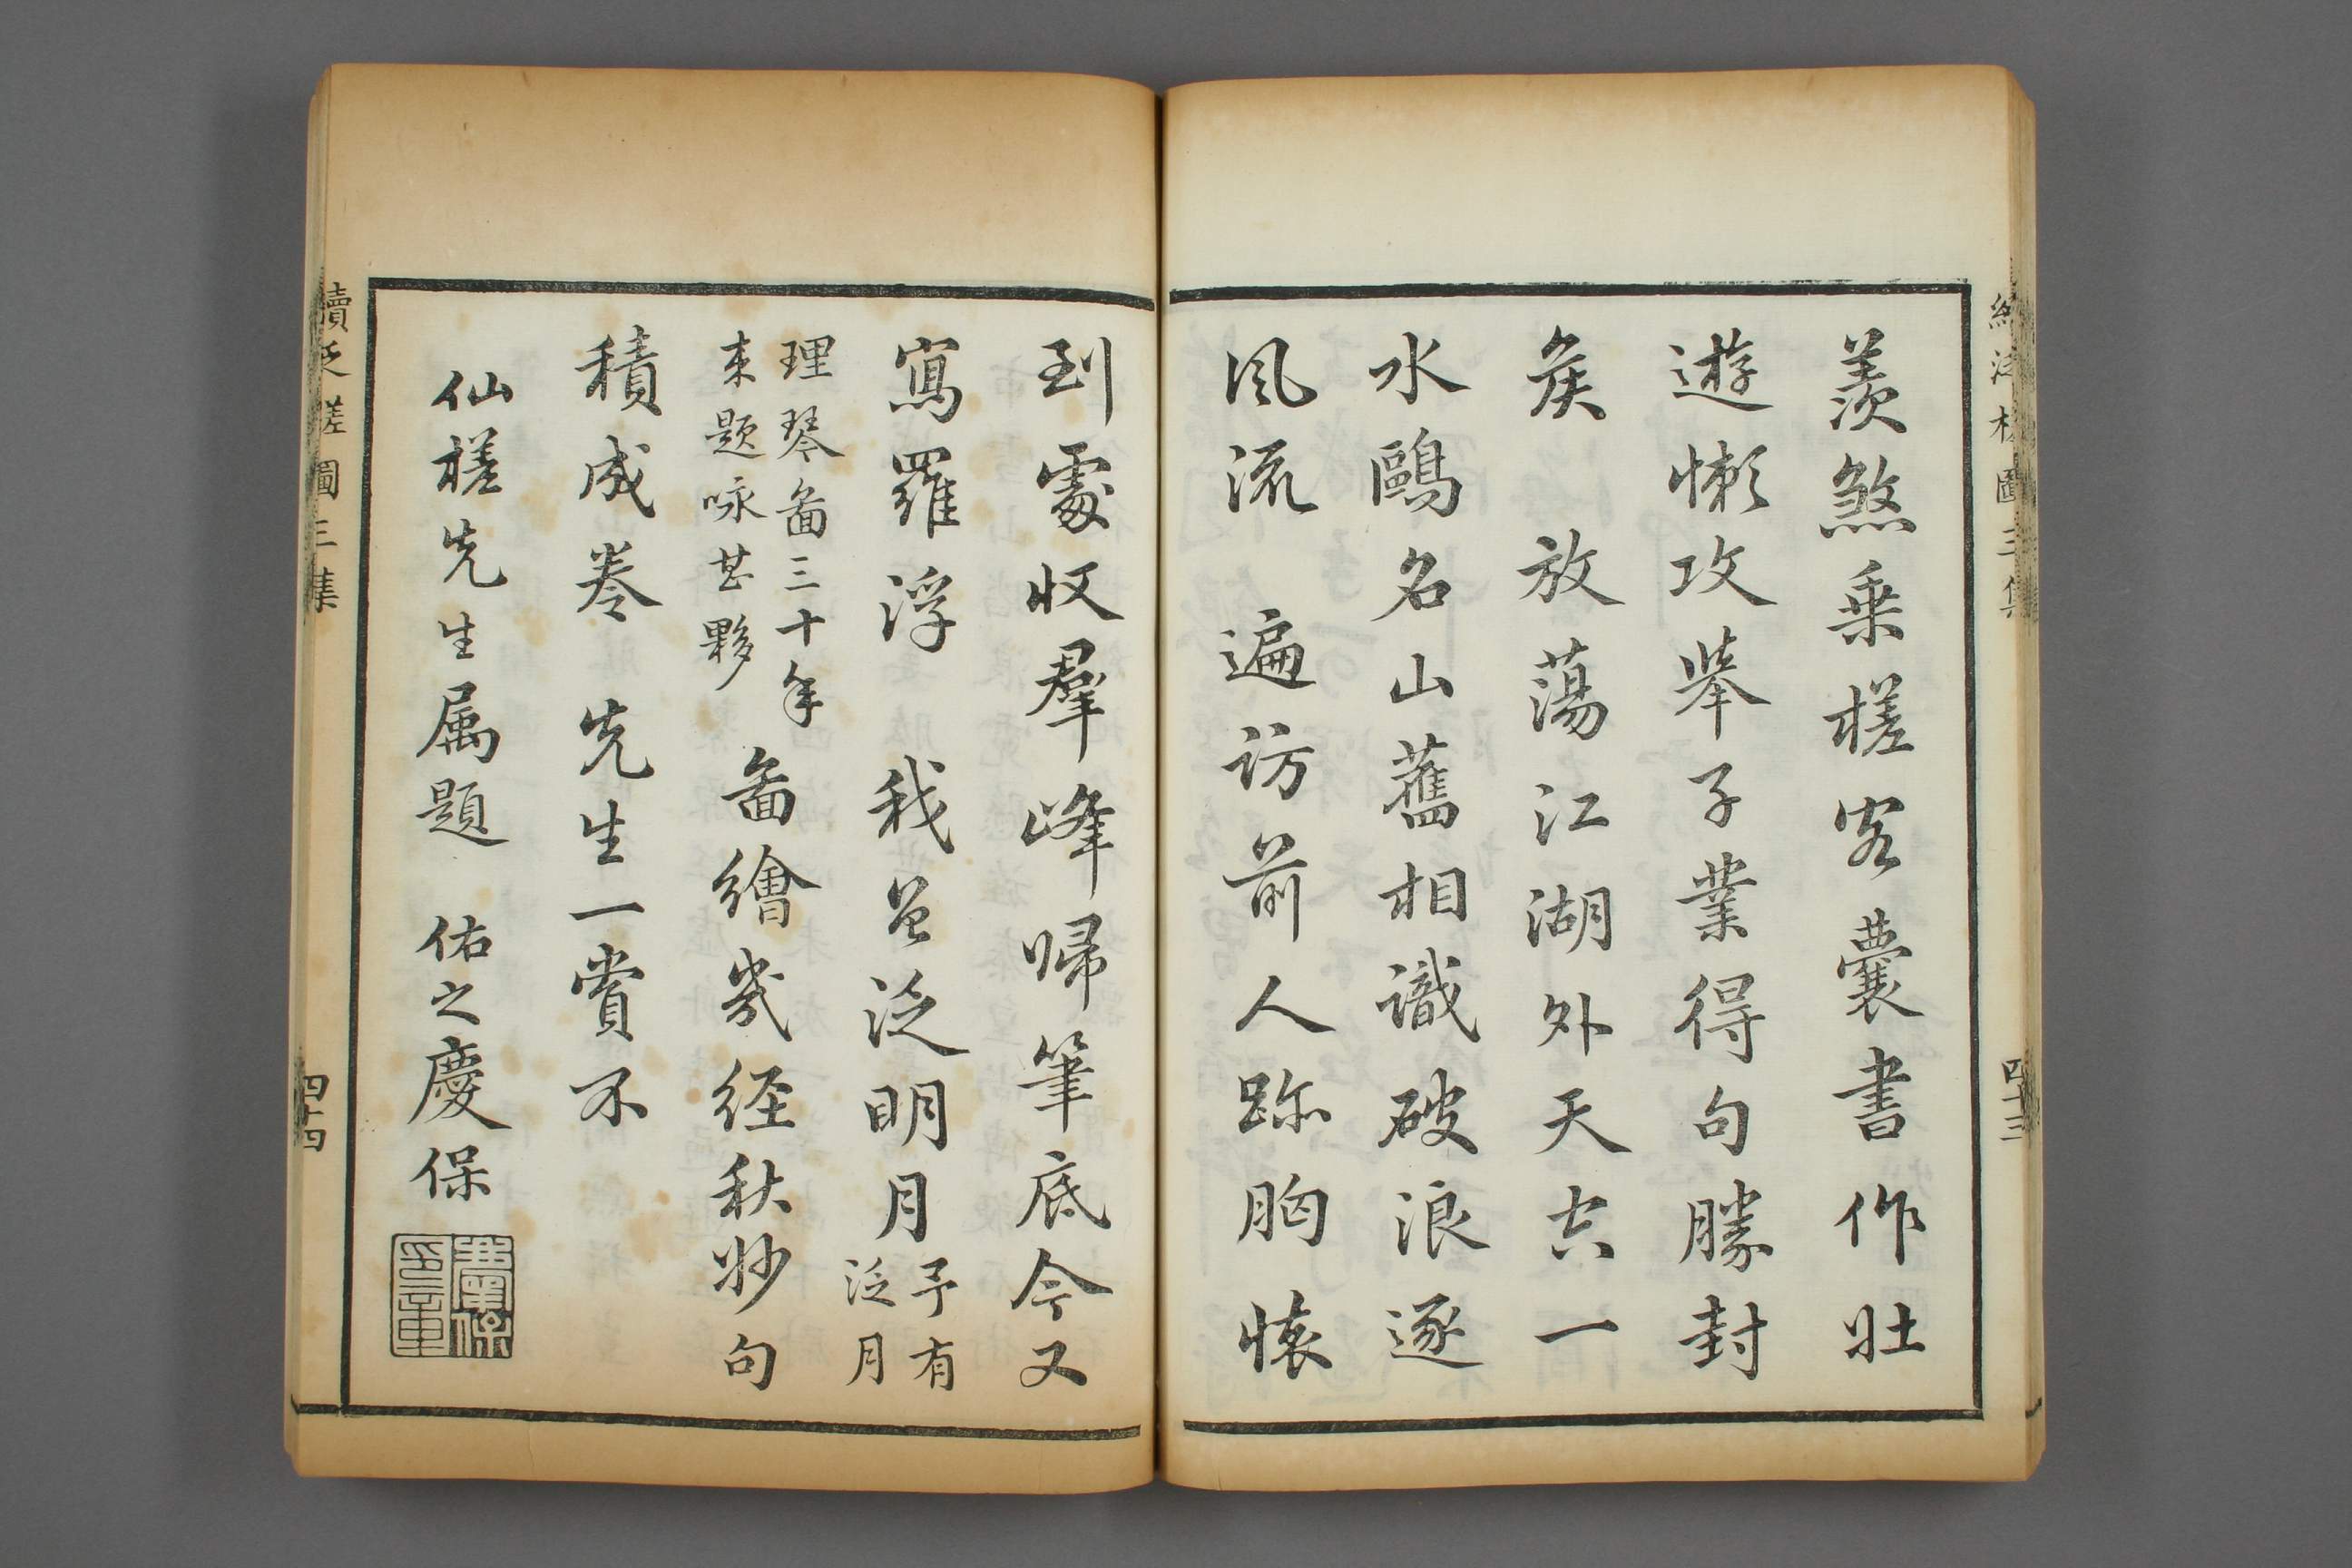 續泛槎圖三集
四十三
羨煞乗槎客囊書作壯
遊懒攻舉子業得句勝封
矦　放蕩江湖外天空一
水鷗名山舊相識破浪逐
風流　遍訪前人跡胸懐
到處收羣峰歸筆底今又
寫羅浮　我曾泛明月予有
泛月
理琴啚三十年
来题咏甚夥
啚繪㡬经秋妙句
積成卷　先生一賞不
仙槎先生属題　佑之慶保
續泛槎圖三集
四十四